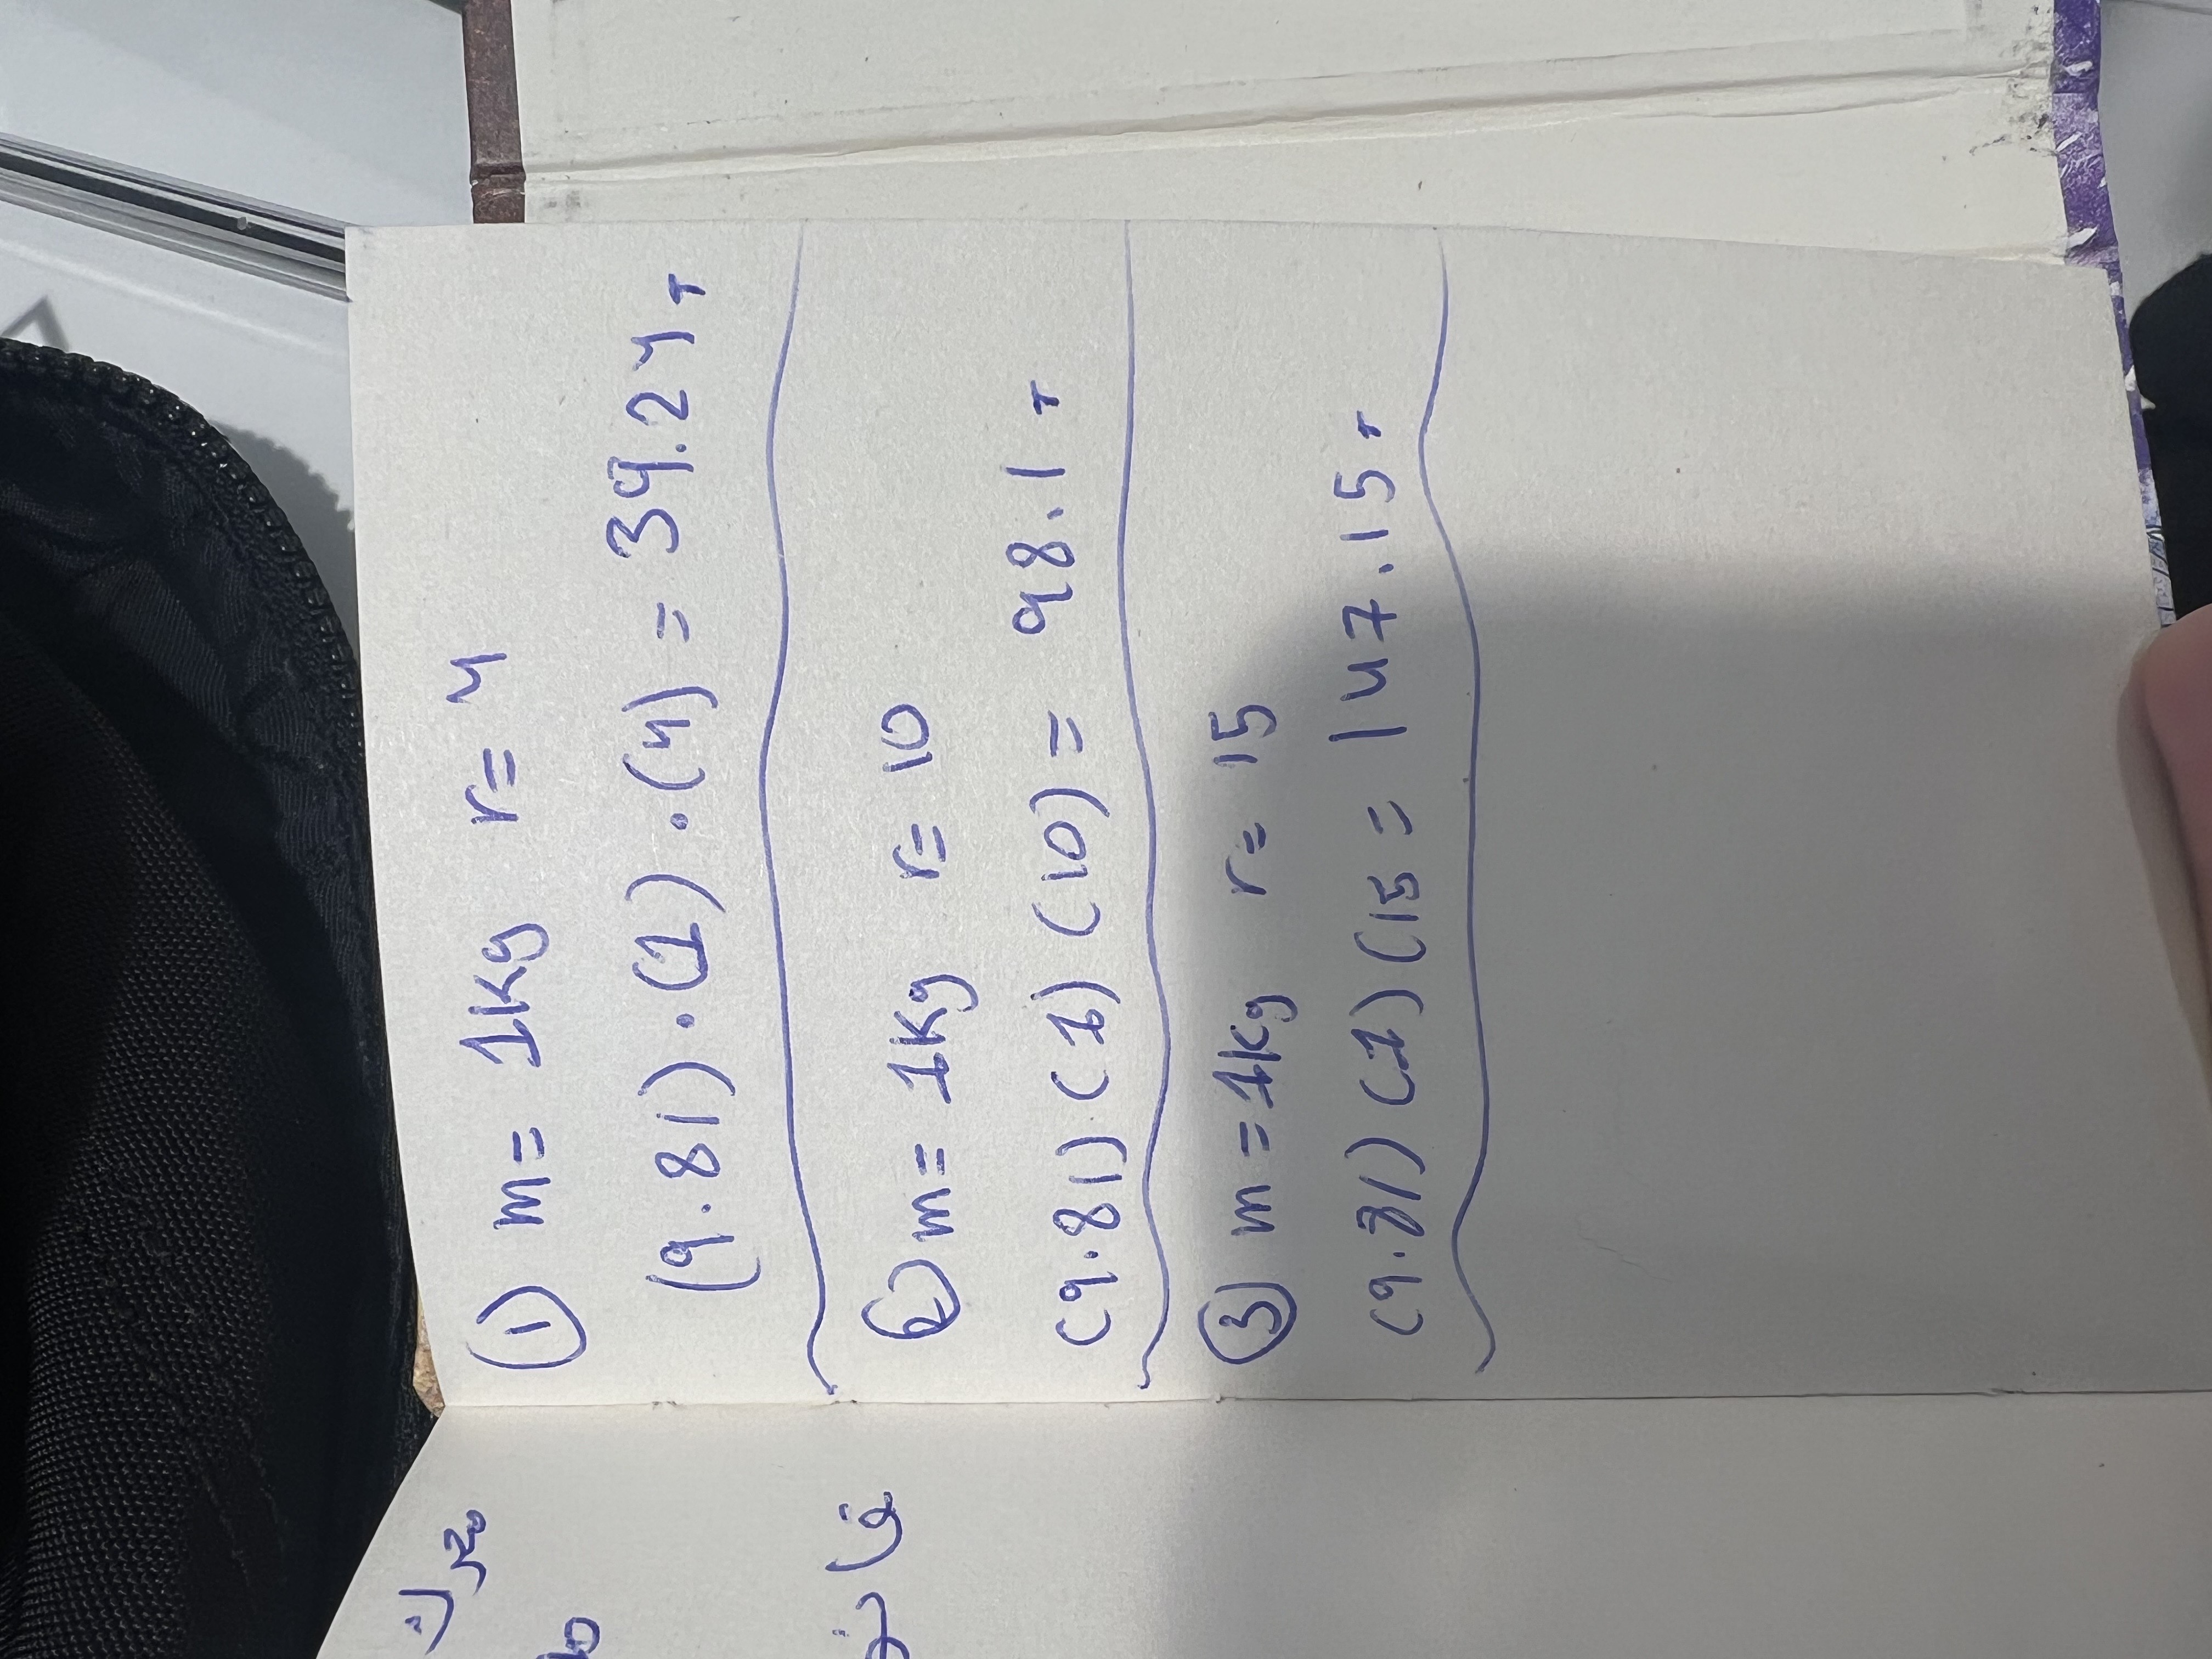 محرك
① m= 1kg r= 4
(9.81).(1).(4) = 39.24 T
② m= 1kg r= 10
(9.81)(1)(10) = 98.1 T
③ m=1kg r= 15
(9.81)(1)(15 = 147.15 T